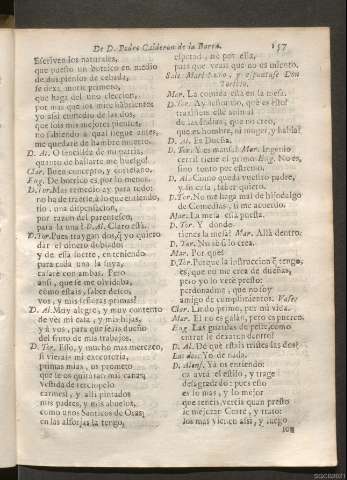 De D. Pedro Calderon de la Barca.
157
Escriven los naturales,
que puesto un borrico en medio
de dos piensos de cebada,
se dexa morir primero,
que haga del uno eleccion,
por mas que los mire hãbrientos
yo assi comedio de las dos,
que sois mis mejores piensos,
no sabiendo à qual llegue antes,
me quedarè de hambre muerto.
D. Al. O sencillèz de mi patria,
quanto de hallarte me huelgo!
Clar. Buen concepto, y cortesano.
Eug. De borrico es por lo menos.
D.Tor. Mas remedio ay para todo:
no ha de traerse, à lo que entiendo,
tio, una dispensacion,
por razon del parentesco,
para la una? D. Al. Claro està.
D.Tor. Pues traygan dos, q̃ yo quiero
dar el dinero doblado;
y de essa suerte, en teniendo
para cada una la suya,
casarè con ambas. Pero
ansi, que se me olvidaba,
còmo estais, saber deseo,
vos, y mis señoras primas?
D. Al. Muy alegre, y muy contento
de vèr mi casa, y mis hijas,
y à vos, para que seais dueño
del fruto de mis trabajos.
D. Tor. Esso, y mucho mas merezco,
si vierais mi executoria,
primas mias, os prometo
que se os quitàran mil canas,
vestida de terciopelo
carmesi, y alli pintados
mis padres, y mis abuelos,
como unos Santicos de Oras;
en las alforjas la tengo,
esperad, irè por ella,
para que veais que no os miento.
Sale Mari-Nuño, y espantase Don
Toribio.
Mar. La comida està en la mesa.
D. Tor. Ay, señor tio, què es esto?
D. Al. Es Dueña.
D. Tor. Y es mansa? Mar. Ingenio
cerril tiene el primo. Eug. No es,
sino tonto por estremo.
D. Al. Còmo queda vuestro padre,
y su casa, saber quiero.
D. Tor. No me haga mal de hijodalgo
de Comedias, si me acuerdo.
Mar. La mesa està puesta.
D. Tor. Y donde
tienes la mesa? Mar. Allà dentro.
D. Tor. No sè si lo crea.
Mar. Por què?
D.Tor. Porque la instruccion q̃ tengo,
es, que no me crea de dueñas,
pero yo lo verè presto:
perdonadme, que no soy
amigo de cumplimientos. Vase.
Clar. Lindo primo, por mi vida.
Mar. El no es galàn, pero es puerco.
D. Al. De què estais tristes las dos?
Las dos. Yo de nada.
D. Alons. Yà os entiendo:
avrà el estilo, y trage
desagradado: pues esso
es lo mas, y lo mejor
que teneis, vereis quan presto
le mejoran Corte, y trato:
los mas vienen assi, y luego
son